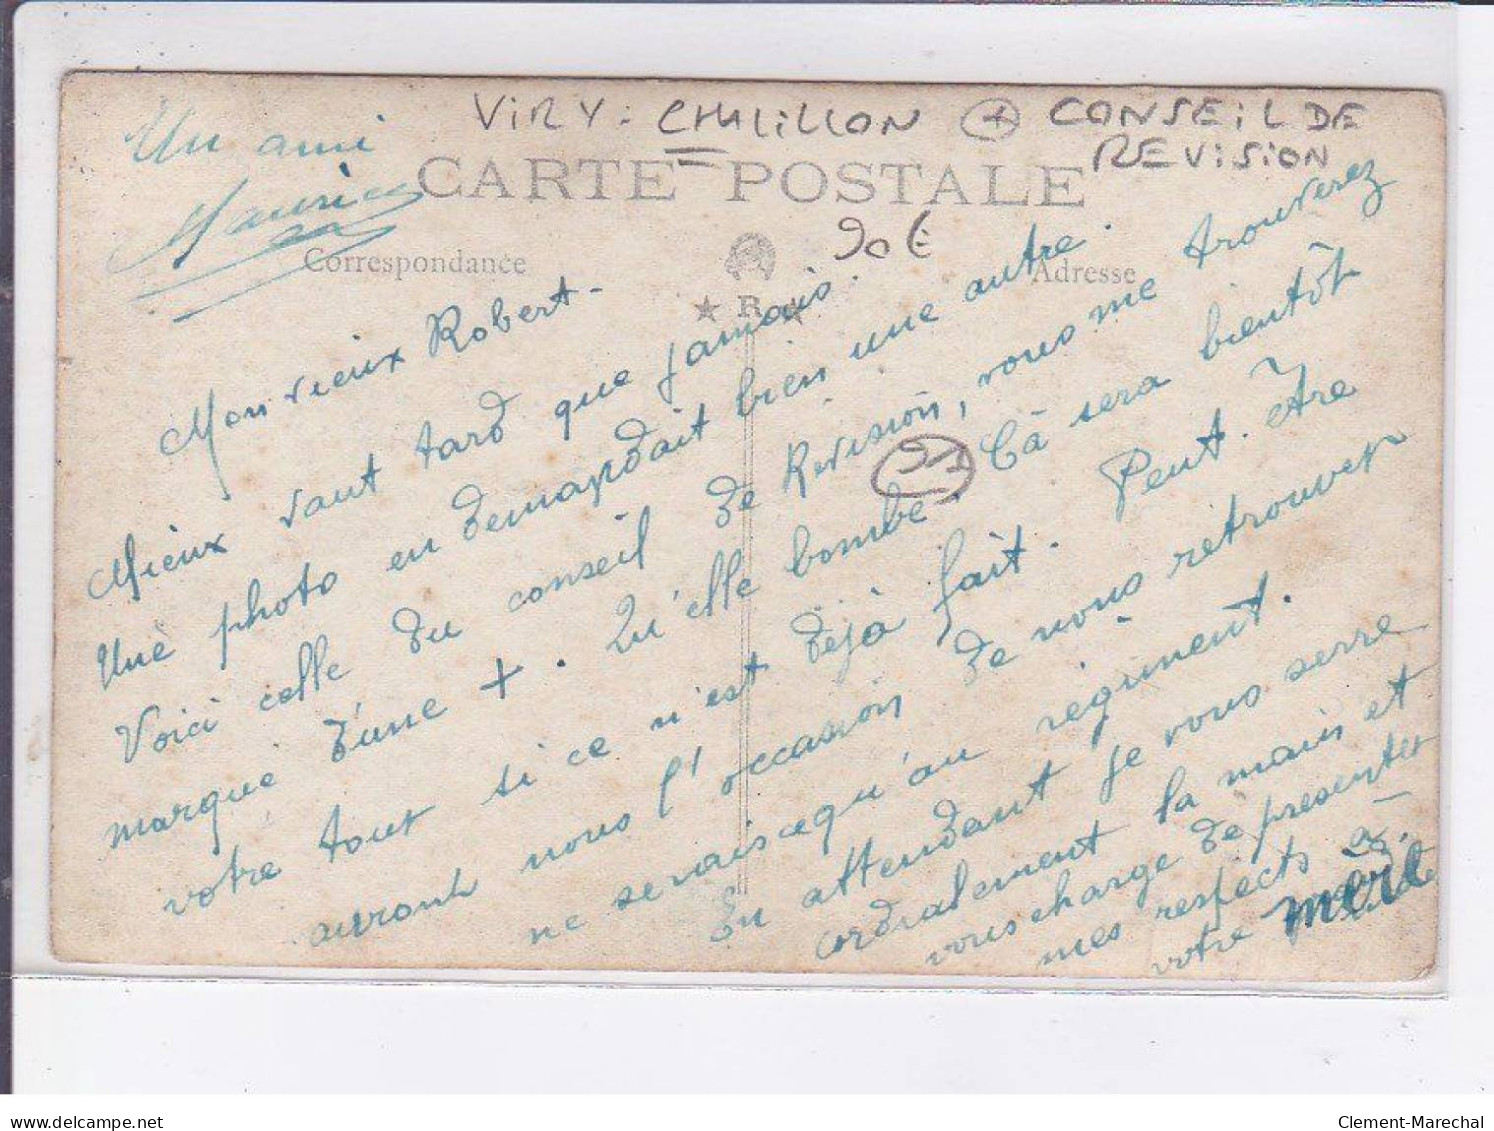 VIRY-CHATILLON + CONSEIL DE
REVISION
CARTE POSTALE
90€
Correspondance
Adresse
★ R ★
91
Mon vieux Robert-
Mieux vaut tard que jamais.
Une photo en demandait bien une autre.
Voici celle du conseil de Revision, vous me trouverez
marqué d'une +. Qu'elle bombe. Çà sera bientôt
votre tour si ce n'est déjà fait. Peut-être
auront nous l'occasion de nous retrouver
ne seraisceq'u'au régiment.
En attendant je vous serre
cordialement la main et
vous charge de presenter
mes respects à
votre
Un ami
Maurice
delcampe.net
Clement-Marechal